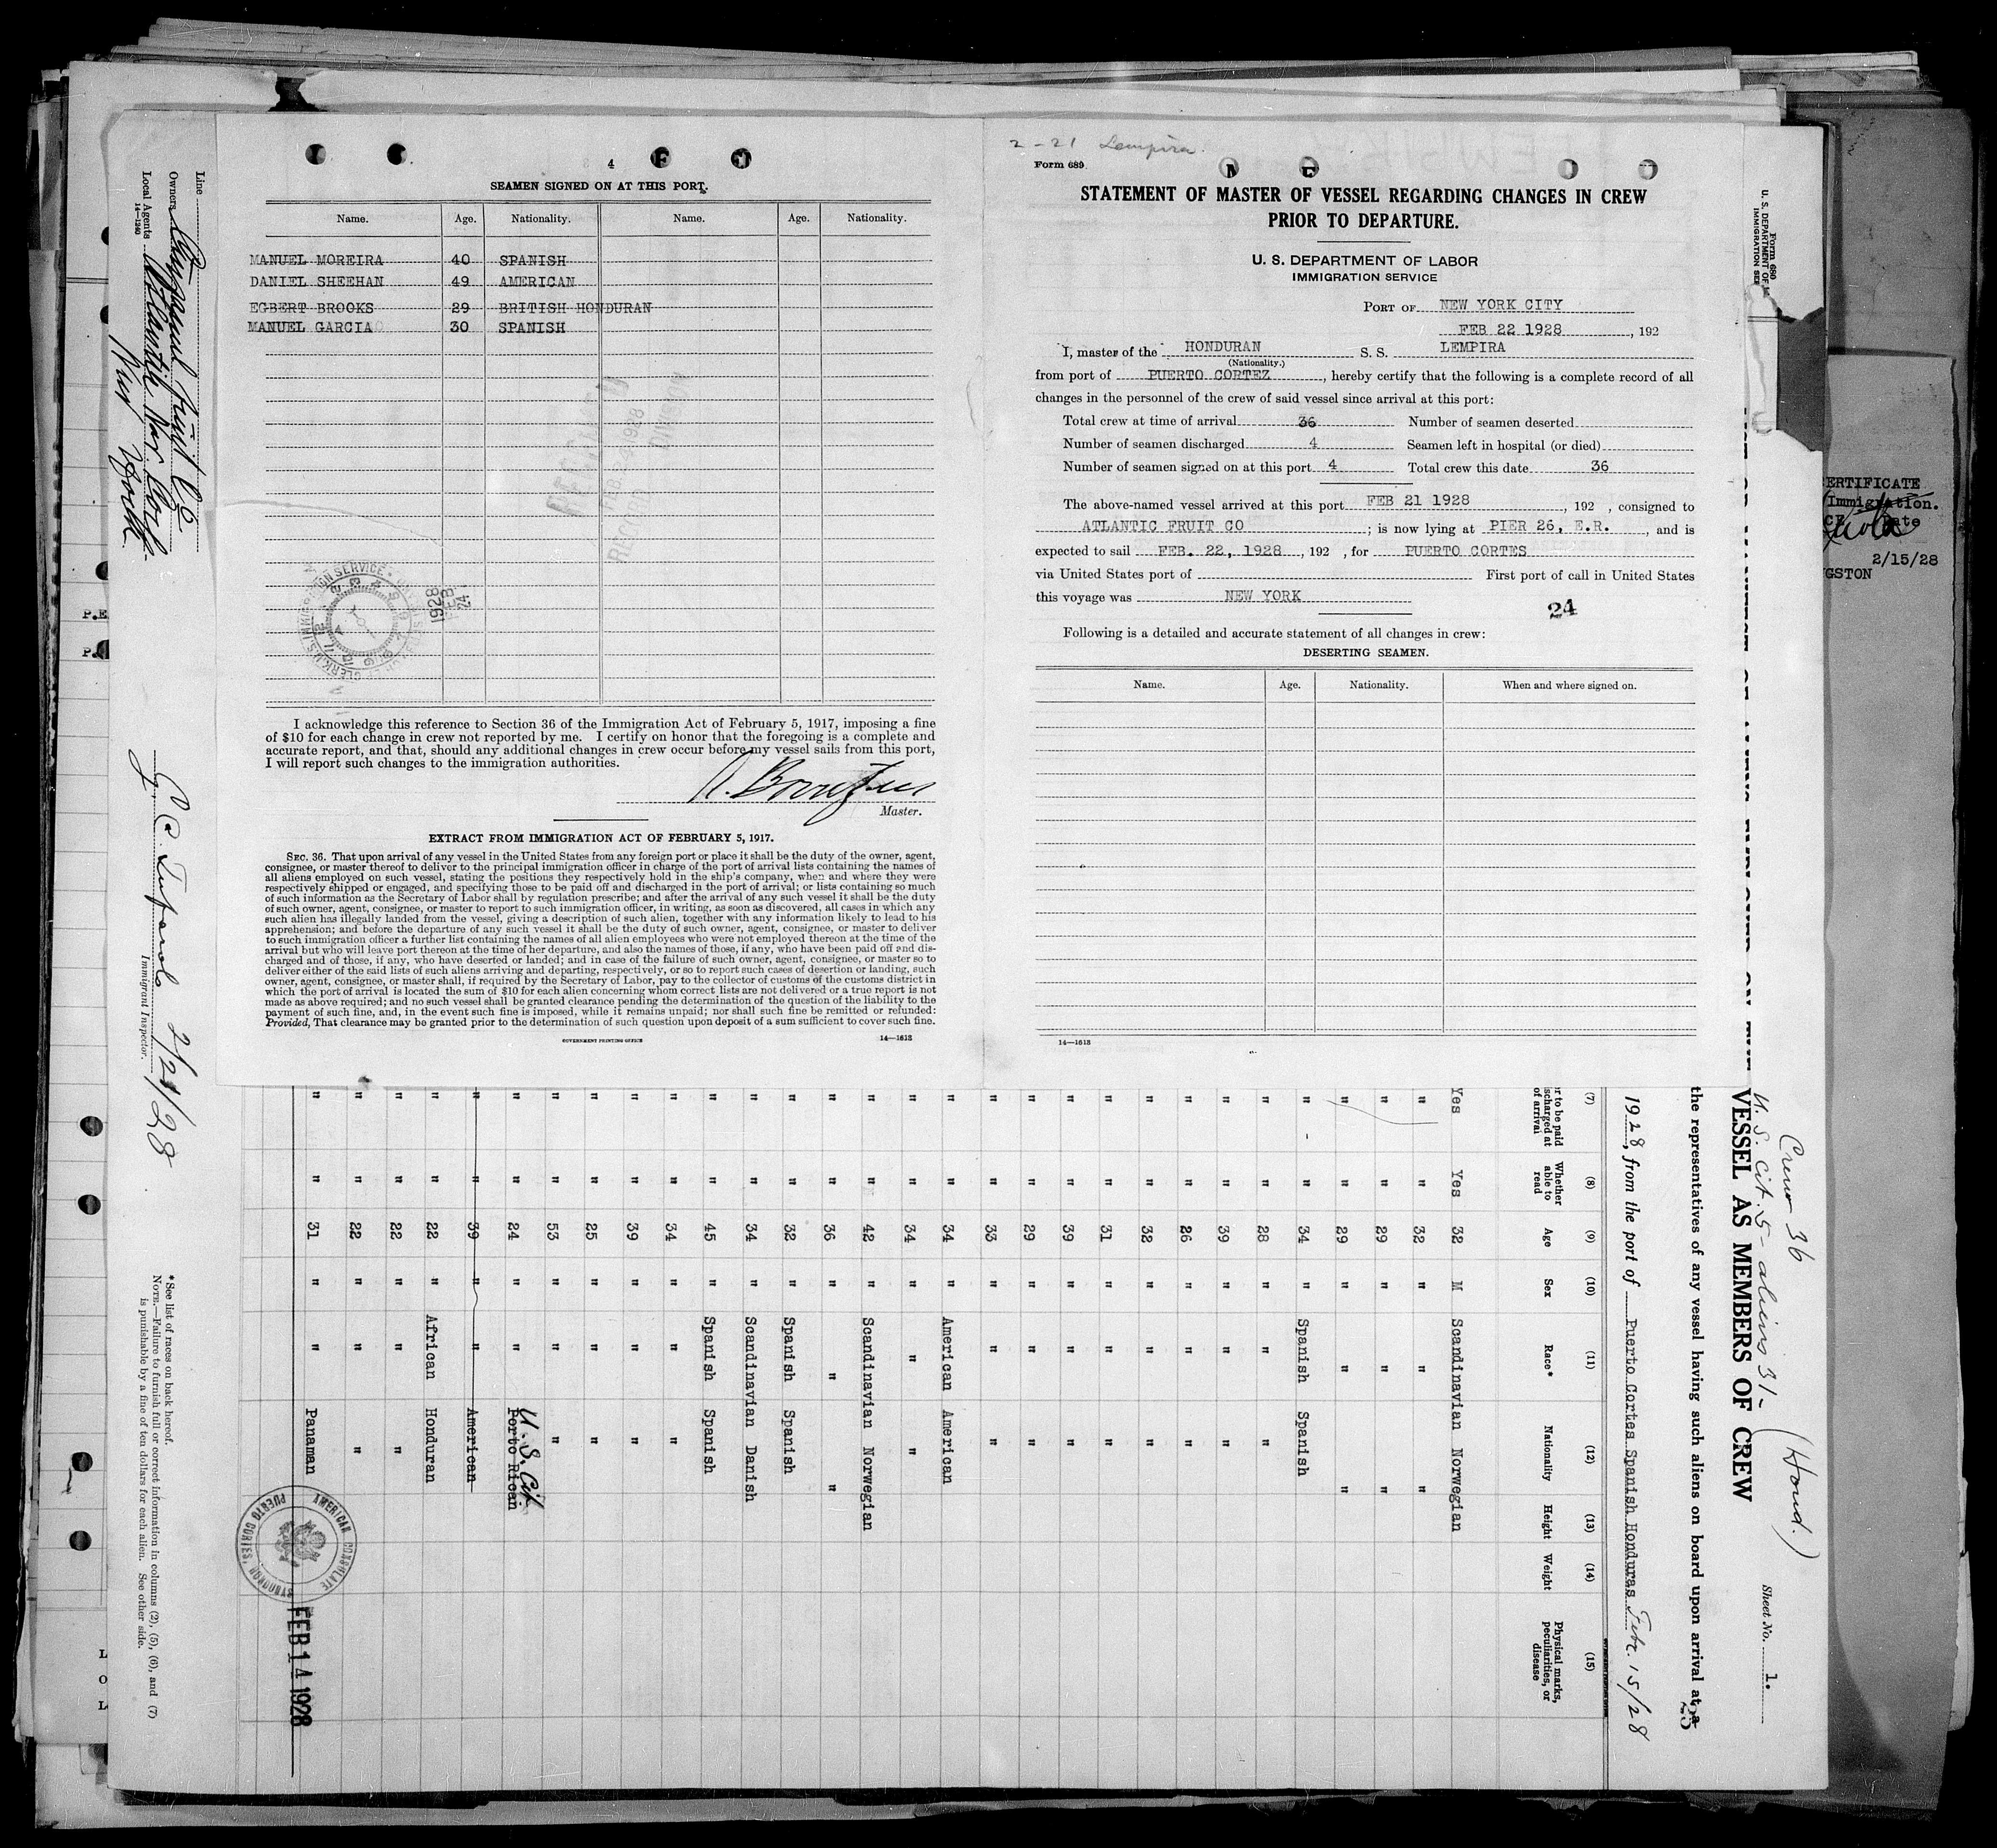 4
SEAMEN SIGNED ON AT THIS PORT.
Name. Age. Nationality. Name. Age. Nationality.
MANUEL MOREIRA 40 SPANISH
DANIEL SHEEHAN 49 AMERICAN
EGBERT BROOKS 29 BRITISH HONDURAN
MANUEL GARCIA 30 SPANISH
FEB 24 1928
RECORD DIVISION
1928
FEB
24
I acknowledge this reference to Section 36 of the Immigration Act of February 5, 1917, imposing a fine
of $10 for each change in crew not reported by me. I certify on honor that the foregoing is a complete and
accurate report, and that, should any additional changes in crew occur before my vessel sails from this port,
I will report such changes to the immigration authorities.
Master.
EXTRACT FROM IMMIGRATION ACT OF FEBRUARY 5, 1917.
SEC. 36. That upon arrival of any vessel in the United States from any foreign port or place it shall be the duty of the owner, agent,
consignee, or master thereof to deliver to the principal immigration officer in charge of the port of arrival lists containing the names of
all aliens employed on such vessel, stating the positions they respectively hold in the ship's company, when and where they were
respectively shipped or engaged, and specifying those to be paid off and discharged in the port of arrival; or lists containing so much
of such information as the Secretary of Labor shall by regulation prescribe; and after the arrival of any such vessel it shall be the duty
of such owner, agent, consignee, or master to report to such immigration officer, in writing, as soon as discovered, all cases in which any
such alien has illegally landed from the vessel, giving a description of such alien, together with any information likely to lead to his
apprehension; and before the departure of any such vessel it shall be the duty of such owner, agent, consignee, or master to deliver
to such immigration officer a further list containing the names of all alien employees who were not employed thereon at the time of the
arrival but who will leave port thereon at the time of her departure, and also the names of those, if any, who have been paid off and dis-
charged and of those, if any, who have deserted or landed; and in case of the failure of such owner, agent, consignee, or master so to
deliver either of the said lists of such aliens arriving and departing, respectively, or so to report such cases of desertion or landing, such
owner, agent, consignee, or master shall, if required by the Secretary of Labor, pay to the collector of customs of the customs district in
which the port of arrival is located the sum of $10 for each alien concerning whom correct lists are not delivered or a true report is not
made as above required; and no such vessel shall be granted clearance pending the determination of the question of the liability to the
payment of such fine, and, in the event such fine is imposed, while it remains unpaid; nor shall such fine be remitted or refunded:
Provided, That clearance may be granted prior to the determination of such question upon deposit of a sum sufficient to cover such fine.
GOVERNMENT PRINTING OFFICE 14—1613
2-21 Lempira
Form 689
STATEMENT OF MASTER OF VESSEL REGARDING CHANGES IN CREW
PRIOR TO DEPARTURE.
U. S. DEPARTMENT OF LABOR
IMMIGRATION SERVICE
PORT OF NEW YORK CITY
FEB 22 1928, 192
I, master of the HONDURAN S. S. LEMPIRA
(Nationality.)
from port of PUERTO CORTEZ, hereby certify that the following is a complete record of all
changes in the personnel of the crew of said vessel since arrival at this port:
Total crew at time of arrival 36 Number of seamen deserted
Number of seamen discharged 4 Seamen left in hospital (or died)
Number of seamen signed on at this port 4 Total crew this date 36
The above-named vessel arrived at this port FEB 21 1928, 192 , consigned to
ATLANTIC FRUIT CO; is now lying at PIER 26, E.R., and is
expected to sail FEB. 22, 1928, 192 , for PUERTO CORTES
via United States port of First port of call in United States
this voyage was NEW YORK
24
Following is a detailed and accurate statement of all changes in crew:
DESERTING SEAMEN.
Name. Age. Nationality. When and where signed on.
14—1613
Crew 36
U.S. Cit. 5 - aliens 31- (Hond.)
Sheet No. 1.
VESSEL AS MEMBERS OF CREW
the representatives of any vessel having such aliens on board upon arrival at a
25
1928, from the port of Puerto Cortes Spanish Honduras Febr. 15/28
(7) (8) (9) (10) (11) (12) (13) (14) (15)
Whether able to read Age Sex Race* Nationality Height Weight Physical marks, peculiarities, or disease
Yes Yes 32 M Scandinavian Norwegian
" " 32 " " "
" " 29 " " "
" " 29 " " "
" " 34 " Spanish Spanish
" " 28 " " "
" " 39 " " "
" " 26 " " "
" " 32 " " "
" " 31 " " "
" " 39 " " "
" " 29 " " "
" " 33 " " "
" " 34 " American American
" " 34 " " "
" " 42 " Scandinavian Norwegian
" " 36 " " "
" " 32 " Spanish Spanish
" " 34 " Scandinavian Danish
" " 45 " Spanish Spanish
" " 34 " " "
" " 39 " " "
" " 25 " " "
" " 53 " " "
" " 24 " " Porto Rican U.S. Cit.
" " 39 " " American
" " 22 " African Honduran
" " 22 " " "
" " 22 " " "
" " 31 " " Panaman
AMERICAN CONSULATE
PUERTO CORTES, HONDURAS
FEB 14 1928
Line
Owners Fruit Co
Local Agents Atlantic Nav. Corp.
New York
14—1240
2/21/28
Immigrant Inspector.
*See list of races on back hereof.
NOTE.—Failure to furnish full or correct information in columns (2), (5), (6), and (7)
is punishable by a fine of ten dollars for each alien. See other side.
Form 680
U. S. DEPARTMENT OF
IMMIGRATION SER
ERTIFICATE
Immigration.
2/15/28
GSTON
P.E